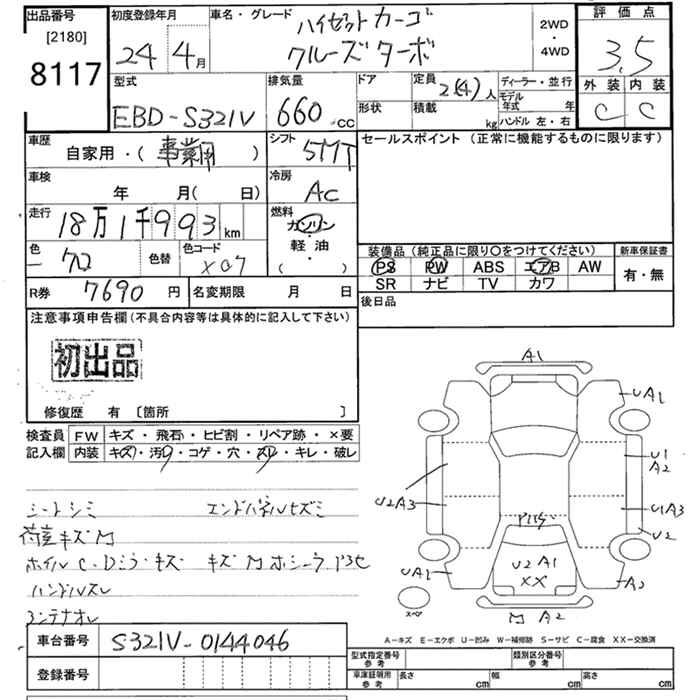 出品番号
[2180]
8117
初度登録年月
24年 4月
車名・グレード
ハイゼットカーゴ
クルーズターボ
2WD
・
4WD
評価点
3.5
外装 内装
C C
型式
EBD-S321V
排気量
660 cc
ドア
形状
定員
2(4)人
積載
kg
ディーラー・並行
モデル年式 年
ハンドル 左・右
車歴
自家用・(事業用)
シフト
5MT
車検
年 月( 日)
冷房
AC
走行
18万1千993km
燃料
ガソリン
・
軽油
・
( )
色
色替
色コード
X07
R券 7690円
名変期限 月 日
セールスポイント(正常に機能するものに限ります)
装備品(純正品に限り○をつけてください)
新車保証書
PS PW ABS エアB AW
SR ナビ TV カワ
有・無
後日品
注意事項申告欄(不具合内容等は具体的に記入して下さい)
初出品
修復歴 有 〔箇所 〕
検査員
記入欄
FW キズ・飛石・ヒビ割・リペア跡・×要
内装 キズ・汚レ・コゲ・穴・スレ・キレ・破レ
シートシミ エンドパネルヒズミ
荷室キズM
ホイルC・Dミラーキズ
ハンドルスレ
A1
UA1
U1
A2
U2A3
U1A3
U2
UA1
U2 A1
XX
A2
M A2
スペア
A-キズ E-エクボ U-凹み W-補修跡 S-サビ C-腐食 XX-交換済
車台番号
S321V-0144046
登録番号
型式指定番号
参考
類別区分番号
参考
車庫証明用
参考
長さ cm
幅 cm
高さ cm